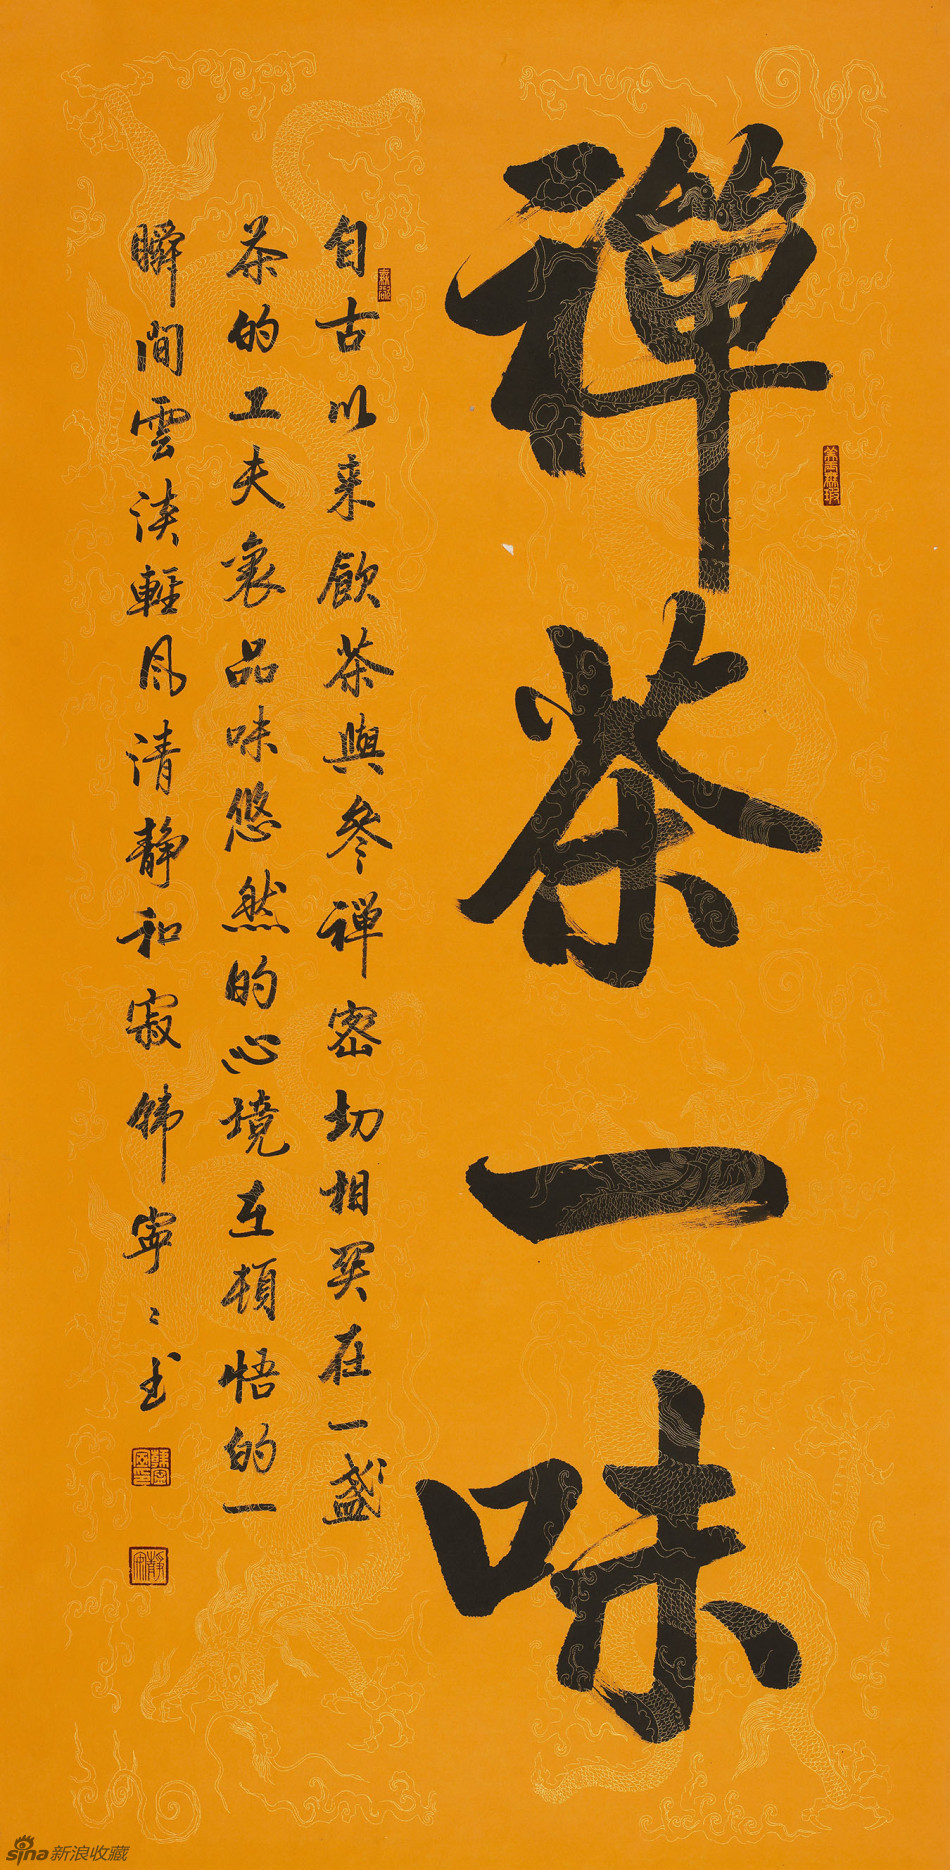 禪茶一味
自古以来飲茶與參禪密切相関在一盞
茶的工夫裏品味悠然的心境在頓悟的一
瞬間雲淡輕风清静和寂韩寧〻书
sina新浪收藏